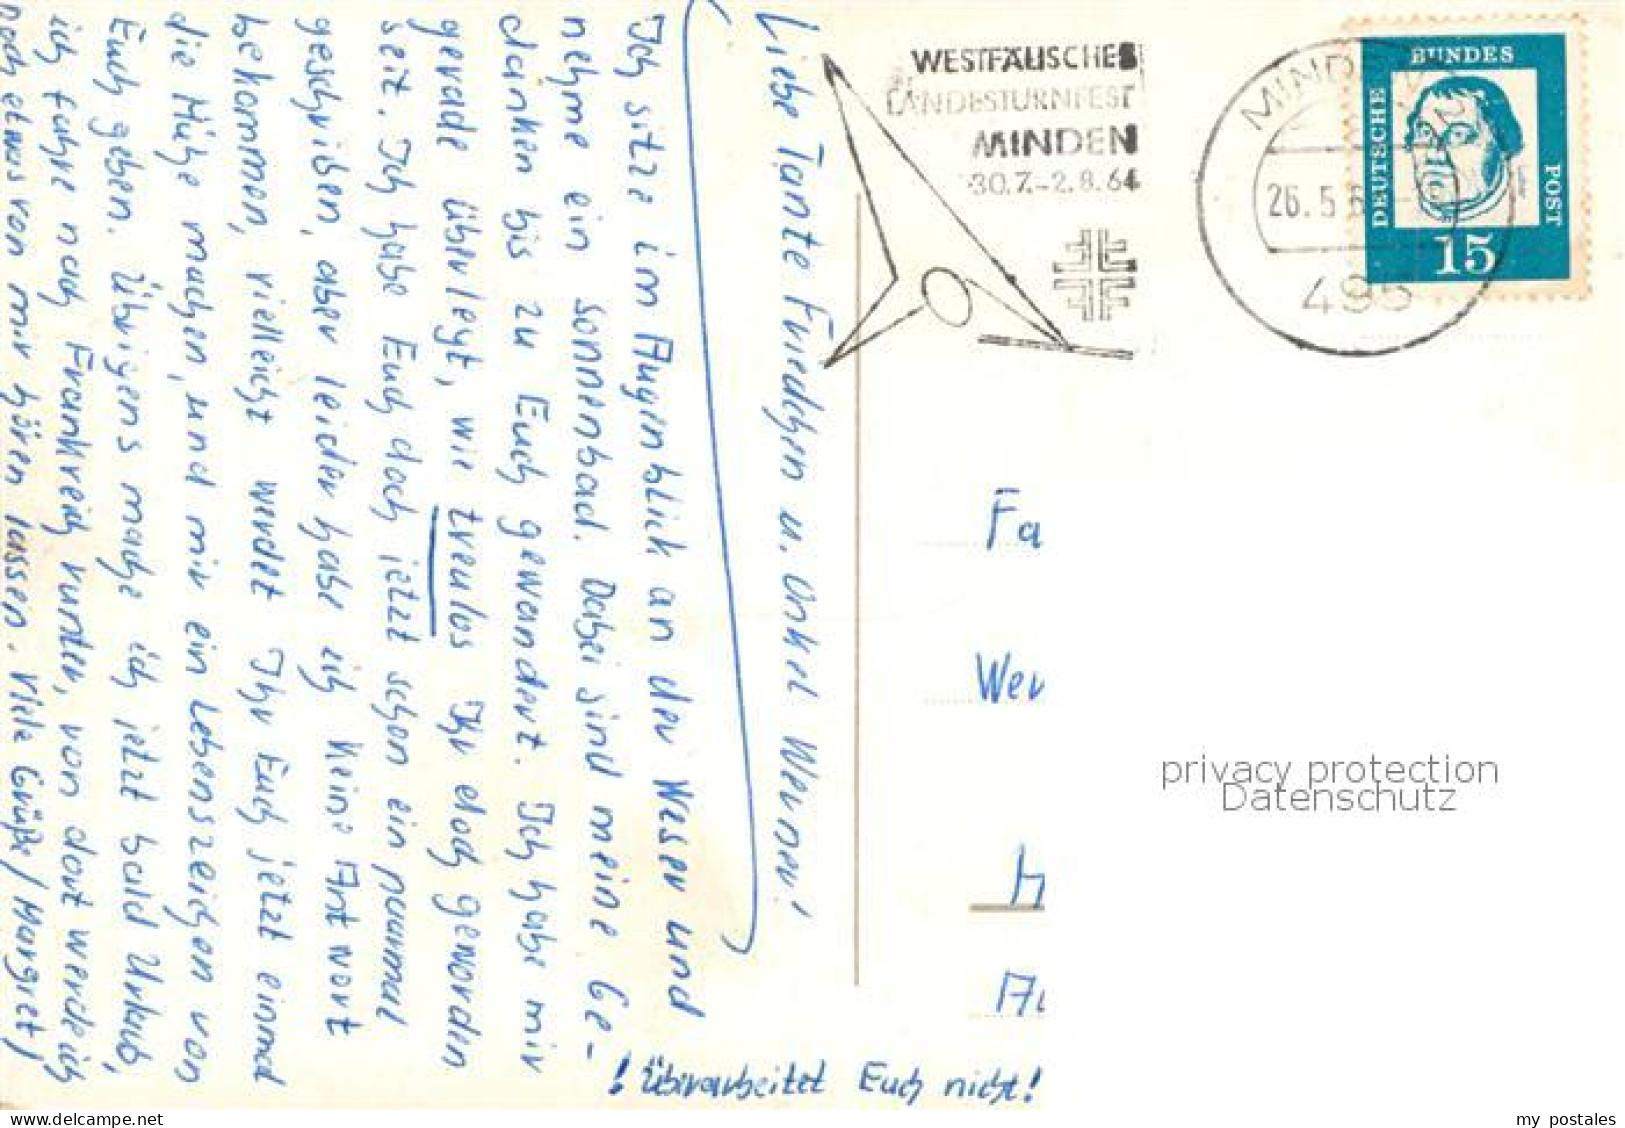 Liebe Tante Friedchen u. Onkel Werner!
Ich sitze im Augenblick an der Weser und
nehme ein Sonnenbad. Dabei sind meine Ge-
danken bis zu Euch gewandert. Ich habe mir
gerade überlegt, wie treulos Ihr doch geworden
seit. Ich habe Euch doch jetzt schon ein paarmal
geschrieben, aber leider habe ich keine Antwort
bekommen, vielleicht werdet Ihr Euch jetzt einmal
die Mühe machen, und mir ein Lebenszeichen von
Euch geben. Übrigens mache ich jetzt bald Urlaub,
ich fahre nach Frankreich runter, von dort werde ich
noch etwas von mir hören lassen. Viele Grüße / Margret /
! überarbeitet Euch nicht!
WESTFÄLISCHES
LANDESTURNFEST
MINDEN
30.7.-2.8.64
MINDEN
26.5.6
495
DEUTSCHE
BUNDES
POST
15
Fa
Wer
privacy protection
Datenschutz
my postales